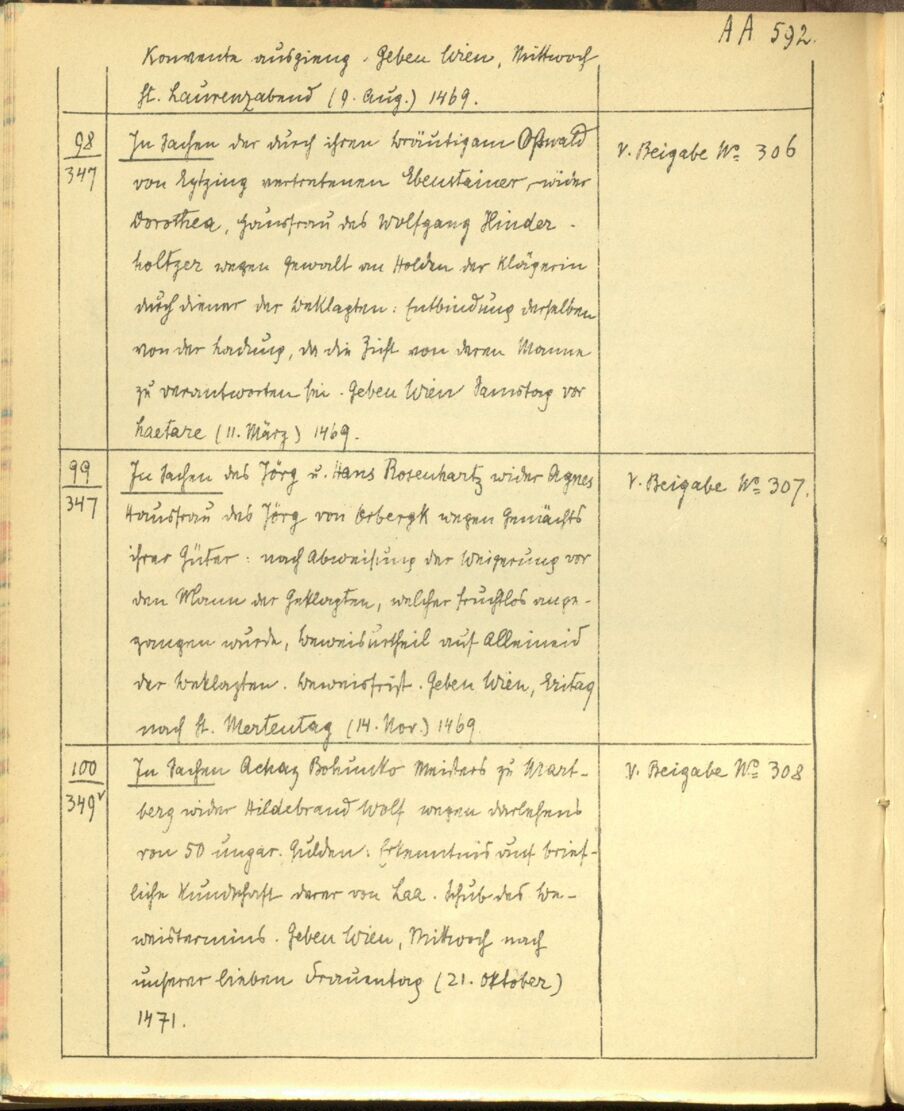 AA 592.
Konvente ausgieng. Geben Wien, Mittwoch
St. Laurenzabend (9. Aug.) 1469.
98
347
In Sachen der durch ihren Bräutigam Oßwald
von Eytzing vertretenen Ebenstainer wider
Dorothea, Hausfrau des Wolfgang Hinder-
holtzer wegen Gewalt an Holden der Klägerin
durch Diener der Beklagten: Entbindung derselben
von der Ladung, da die Zicht von deren Manne
zu verantworten sei. Geben Wien Samstag vor
Laetare (11. März) 1469.
V. Beigabe No 306
99
347
In Sachen des Jörg u. Hans Rosenhartz wider Agnes
Hausfrau des Jörg von Erbergk wegen Gemächts
ihrer Güter: nach Abweisung der Weigerung vor
den Mann der Geklagten, welcher fruchtlos ange-
gangen wurde, Beweisurtheil auf Alleineid
der Beklagten. Beweisfrist. Geben Wien, Eritag
nach St. Mertentag (14. Nov.) 1469.
V. Beigabe No 307.
100
349v
In Sachen Achaz Bohunko Meisters zu Mart-
berg wider Hildebrand Wolf wegen Darlehens
von 50 ungar. Gulden: Erkenntnis auf brief-
liche Kundschaft derer von Laa. Schub des Be-
weistermins. Geben Wien, Mittwoch nach
unserer lieben Frauentag (21. Oktober)
1471.
V. Beigabe No 308